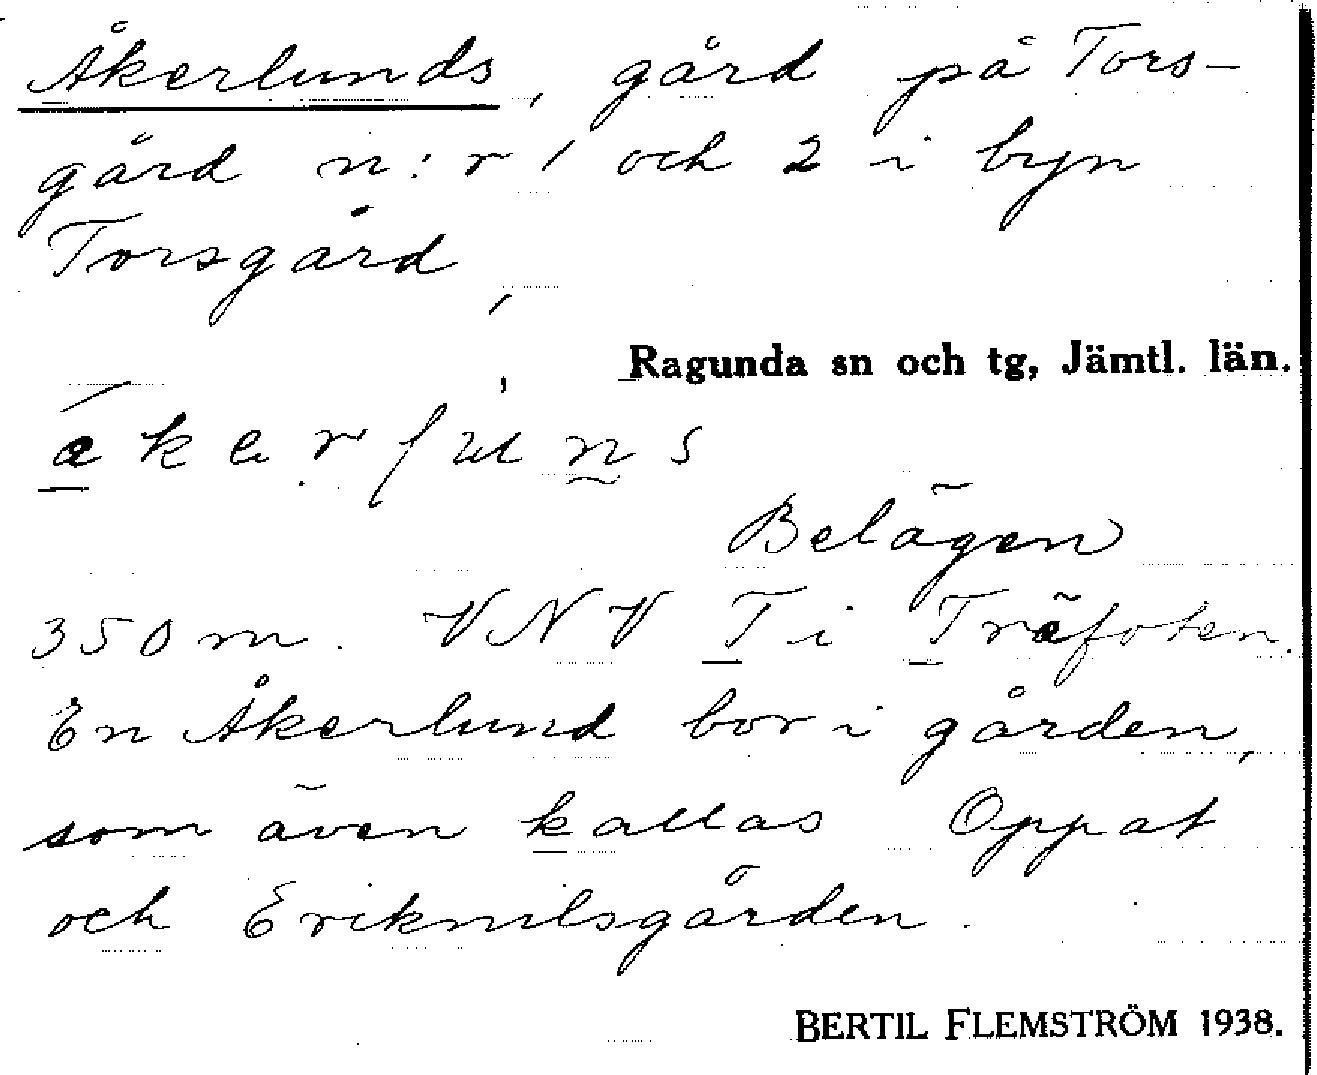 Åkerlunds, gård på Tors-
gård n:r 1 och 2 i byn
Torsgård
Ragunda sn och tg, Jämtl. län.
Belägen
350 m. VNV T i Träfoten.
En Åkerlund bor i gården,
som även kallas Oppat
och Eriknilsgården.
BERTIL FLEMSTRÖM 1938.